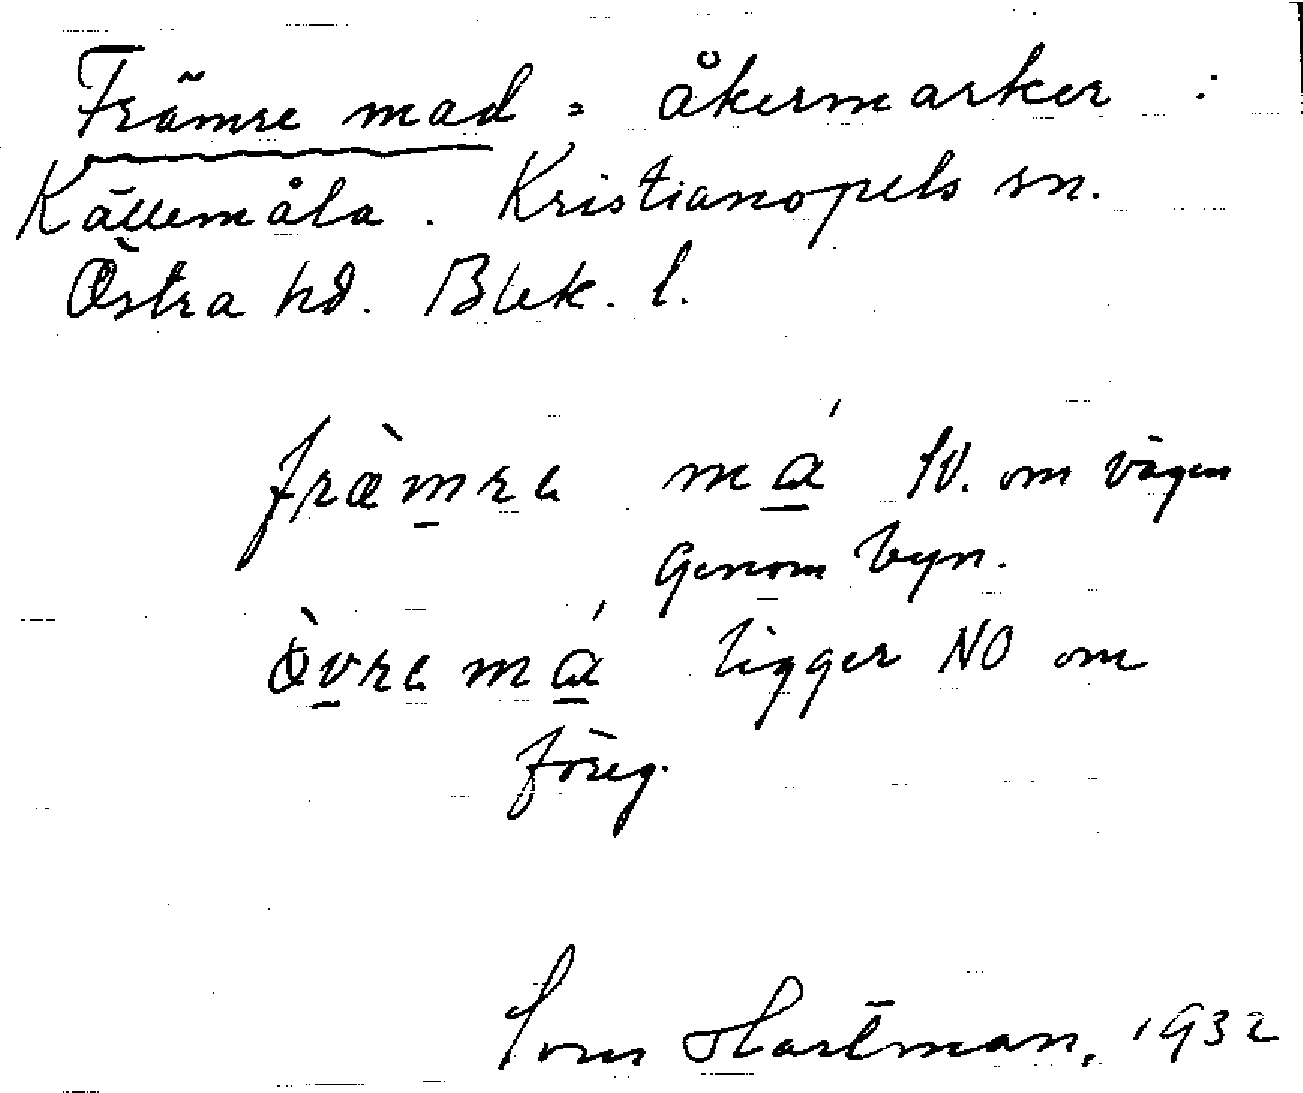 Främre mad = åkermarker i
Källemåla. Kristianopels sn.
Östra hd. Blek. l.
fræ̀mrɐ má SV. om vägen
genom byn.
ö̀vrɐ má ligger NO om
föreg.
Sven Hartman, 1932